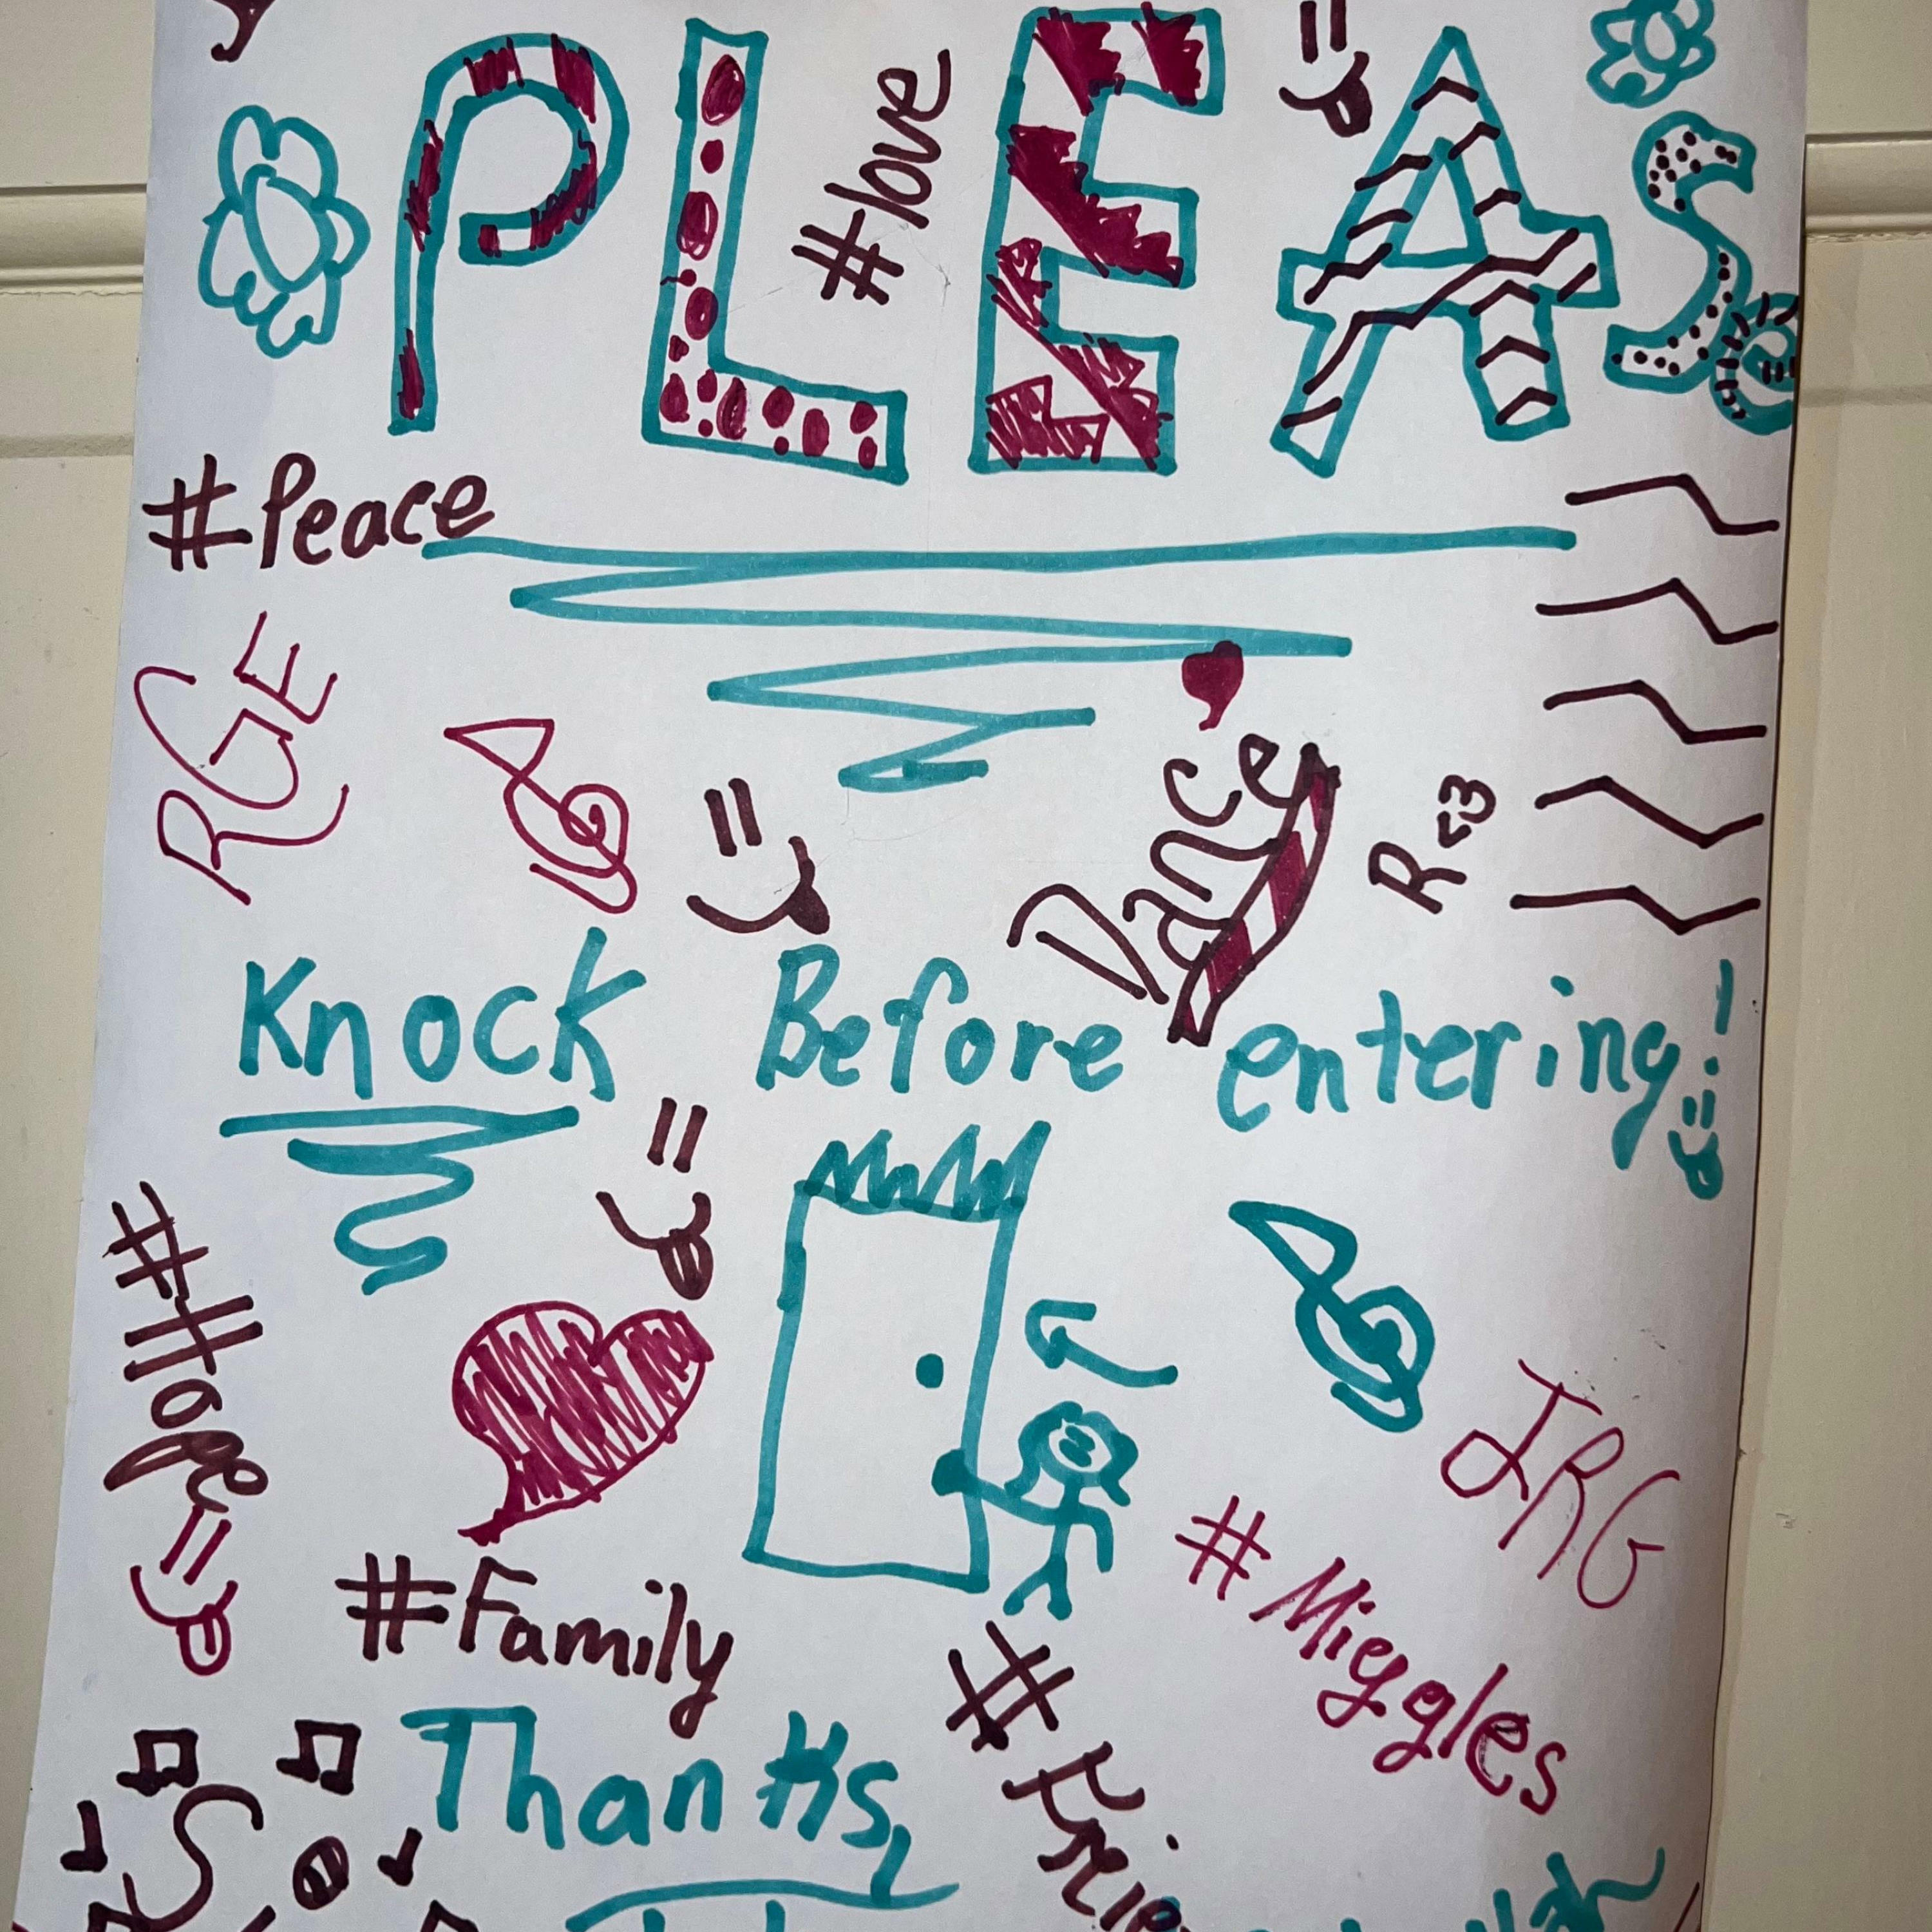 PLEASe
#love
#Peace
RGE
Dance
R<3
Knock Before entering!
#Hope
JRG
#Family
#Mieggles
Thanks,